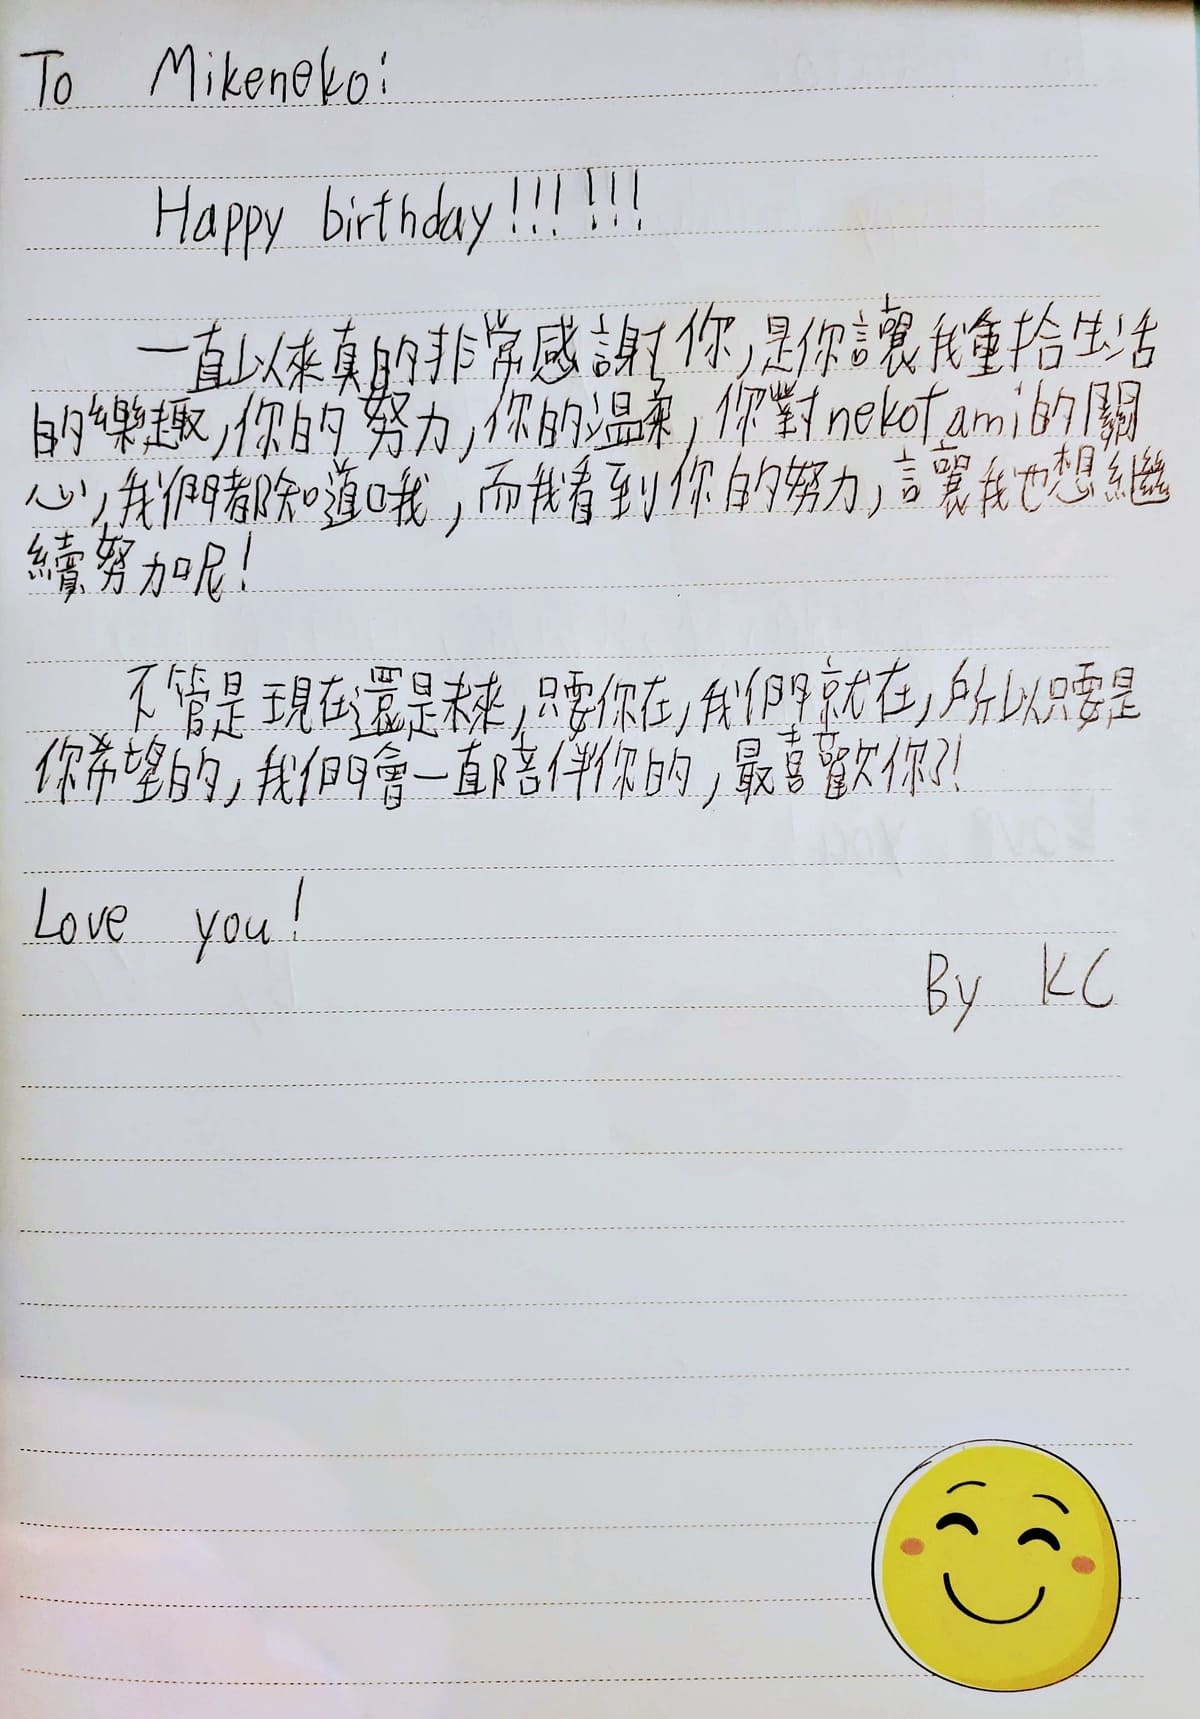 To Mikeneko:
Happy birthday!!!!!!
一直以來真的非常感謝你,是你讓我重拾生活
的樂趣,你的努力,你的溫柔,你對nekotami的關
心,我們都知道哦,而我看到你的努力,讓我也想繼
續努力呢!
不管是現在還是未來,只要你在,我們就在,所以只要是
你希望的,我們會一直陪伴你的,最喜歡你了!
Love you!
By KC